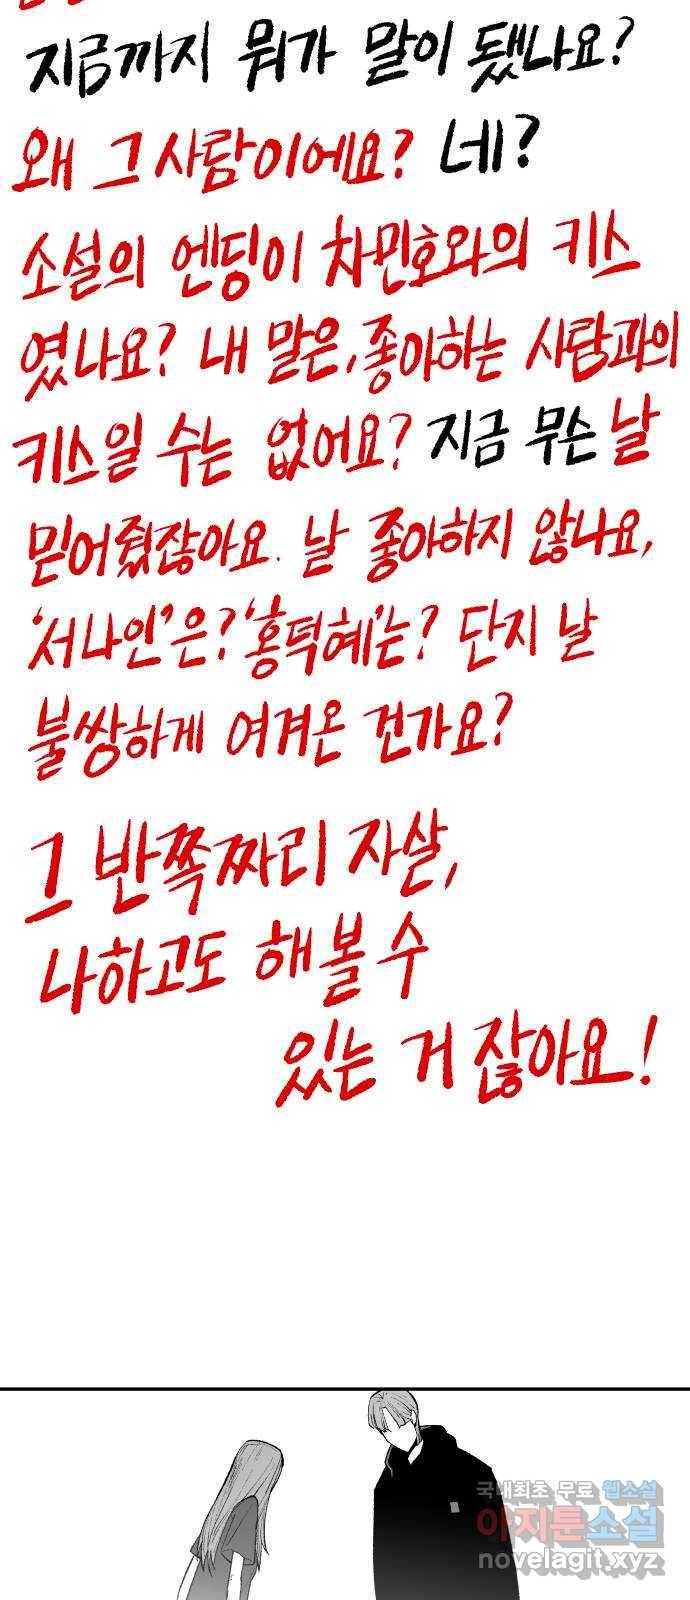 지금까지 뭐가 말이 됐나요?
왜 그 사람이에요? 네?
소설의 엔딩이 차민호와의 키스
였나요? 내 말은, 좋아하는 사람과의
키스일 수는 없어요? 지금 무슨 날
믿어줬잖아요. 날 좋아하지 않나요,
'서나인'은? '홍덕혜'는? 단지 날
불쌍하게 여겨온 건가요?
그 반쪽짜리 자살,
나하고도 해볼 수
있는 거잖아요!
국내최초 무료 웹소설
아지툰소설
novelagit.xyz